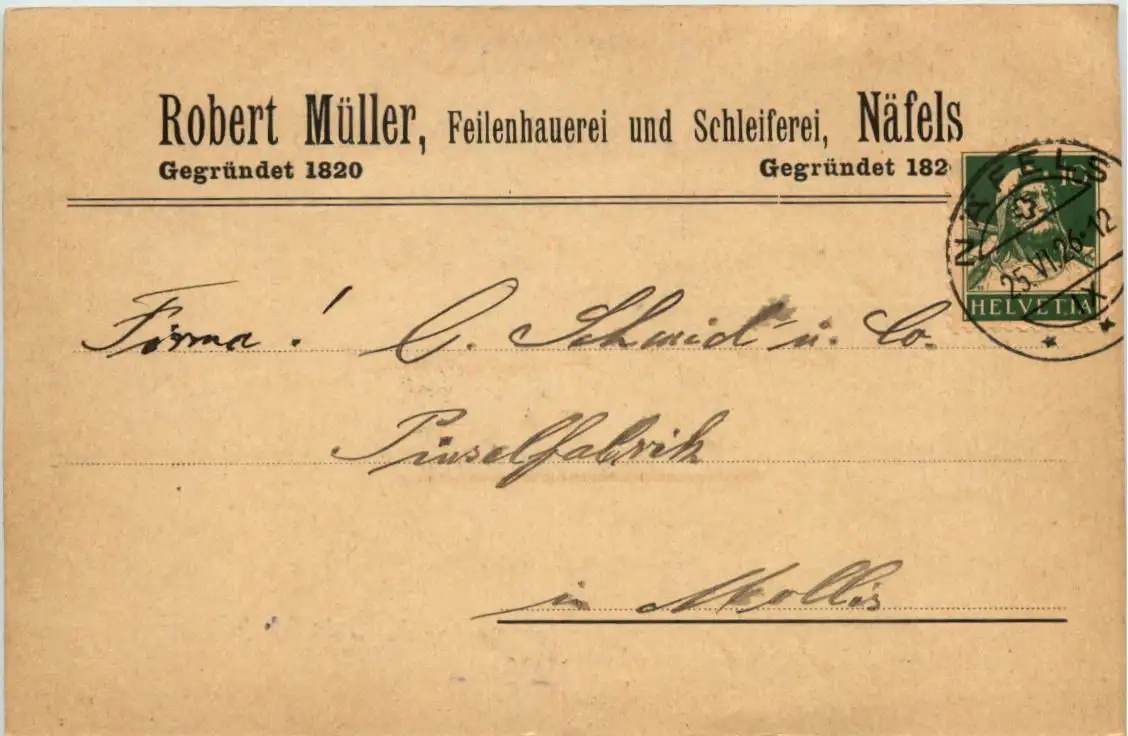 Robert Müller, Feilenhauerei und Schleiferei, Näfels
Gegründet 1820 Gegründet 182
10
NÄFELS
25.VI.26-12
IX
HELVETIA
Firma! C. Schmid u. Co.
Pinselfabrik
in Mollis